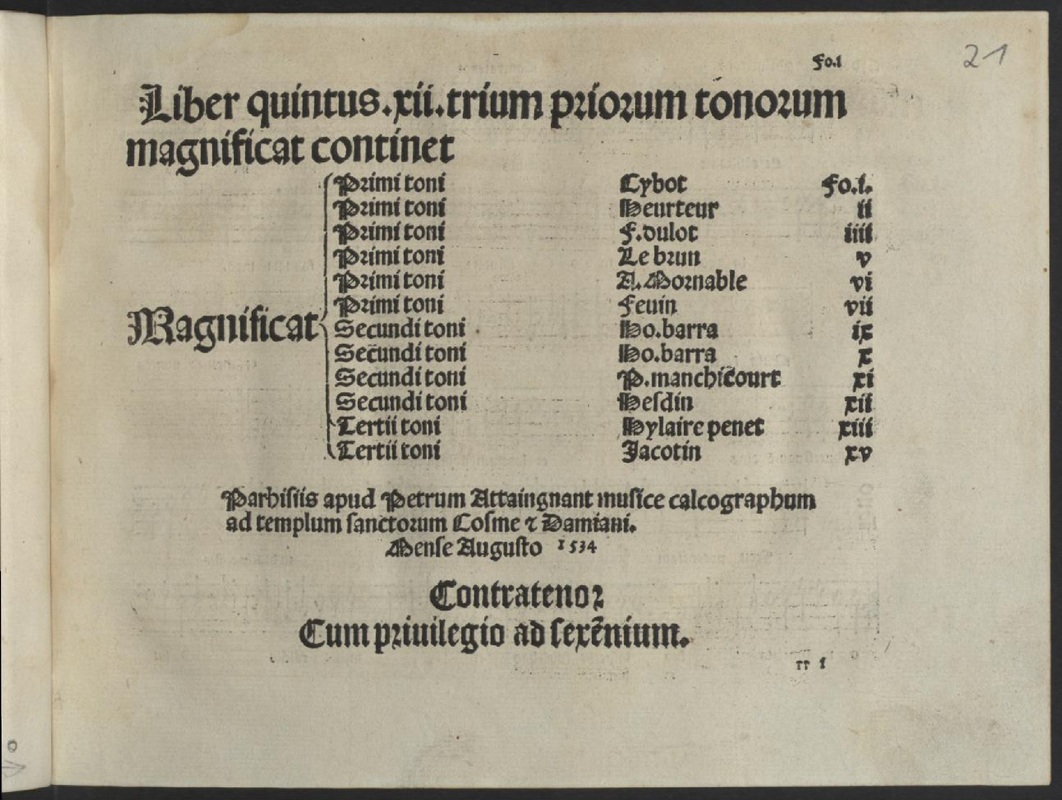 Fo.I
21
Liber quintus.xii.trium priorum tonorum
magnificat continet
Primi toni Cybot Fo.i.
Primi toni Heurteur ii
Primi toni F.dulot iiii
Primi toni Le brun v
Primi toni A.Mornable vi
Primi toni Feuin vii
Magnificat
Secundi toni Ho.barra ix
Secundi toni Ho.barra x
Secundi toni P.manchicourt xi
Secundi toni Hesdin xii
Tertii toni Hylaire penet xiii
Tertii toni Jacotin xv
Parhisiis apud Petrum Attaingnant musice calcographum
ad templum sanctorum Cosme ⁊ Damiani.
Mense Augusto 1534
Contratenor
Cum priuilegio ad sexẽnium.